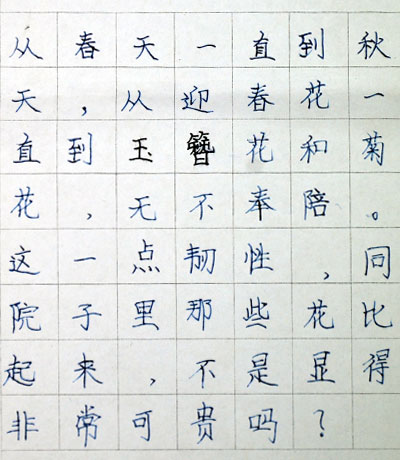 从春天一直到秋
天，从迎春花一
直到玉簪花和菊
花，无不奉陪。
这一点韧性，同
院子里那些花比
起来，不是显得
非常可贵吗？